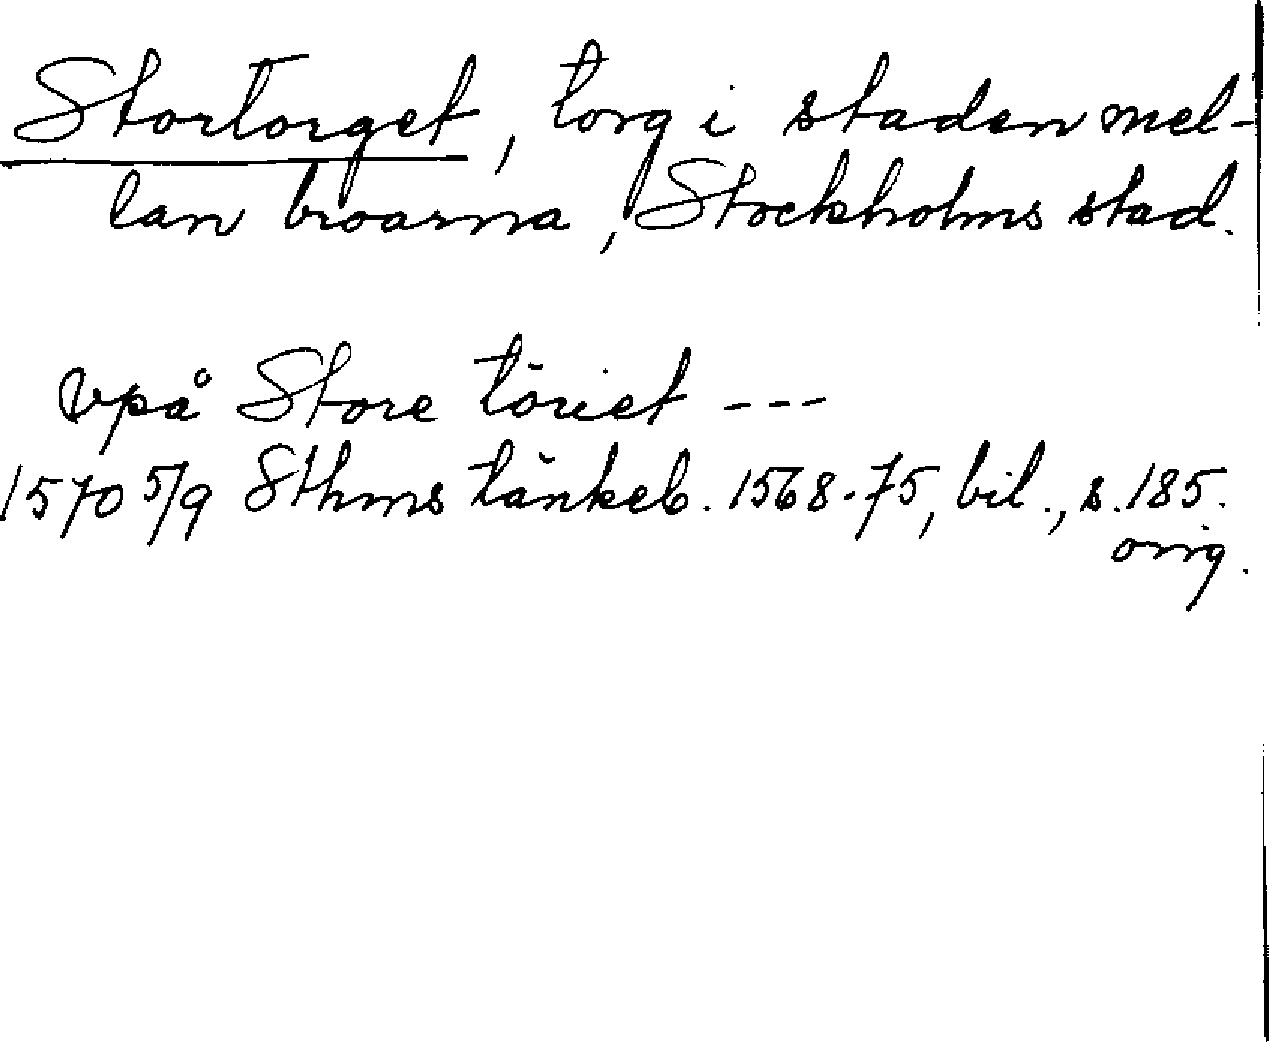 Stortorget, torg i staden mel-
lan broarna, Stockholms stad.
vpå Store töriet ---
1570 5/9 Sthms tänkeb. 1568-75, bil., s. 185.
orig.